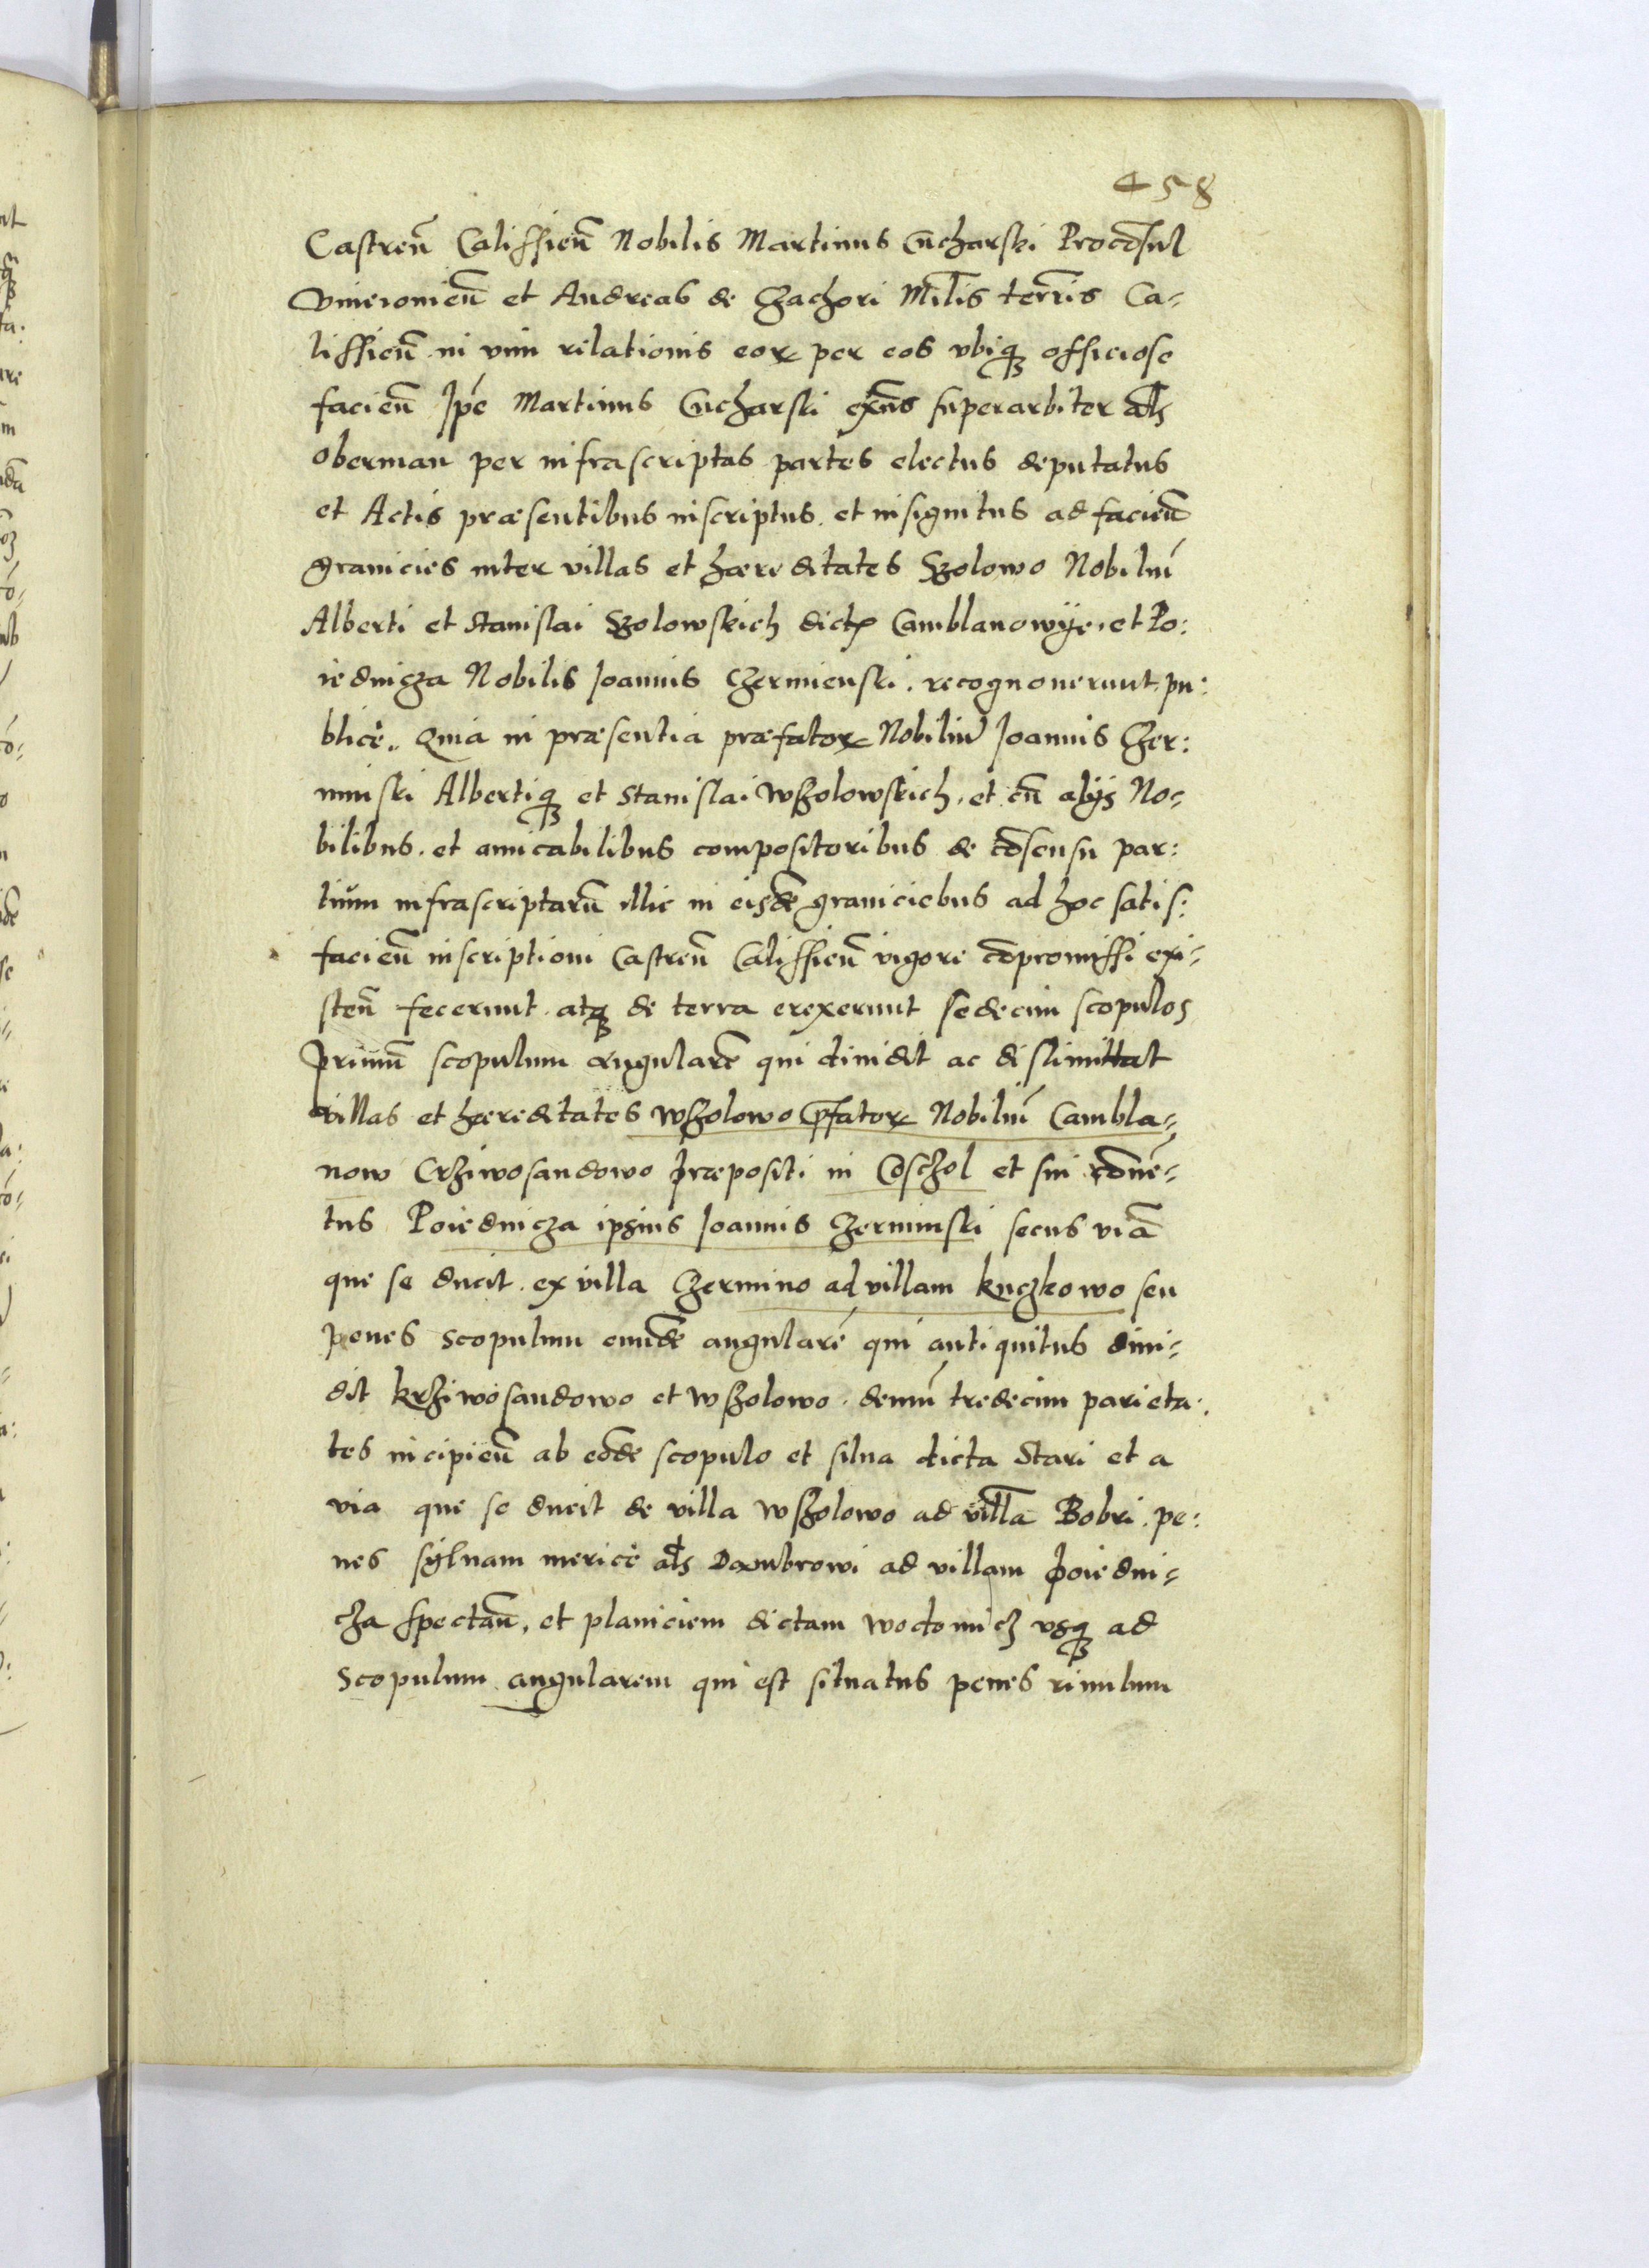 458
Castreñ Calissieñ Nobilis Martinus Cucharski Procōsul
et Andreas de Czachori Ca-
lissieñ in vim relationis eor per eos vbiq officiose
facieñ Jpe Martinus Cucharski superarbiter als
oberman per infrascriptas partes electus deputatus
et Actis præsentibus inscriptus et insignitus ad facieñ
granicies inter villas et hæreditates Szolowo Nobiliū
Alberti et Stanislai Szolowskich dict Camblanowÿe et Po:
iednicza Nobilis Joannis Czermienski recognouerunt pu:
blicè. Quia in præsentia præfator Nobiliū Joannis Czer:
minski Albertiq et Stanislai Wszolowskich et cū alÿs No-
bilibus et amicabilibus compositoribus de cōsensu par:
tium infrascriptarū illic in eisdē graniciebus ad hoc satis:
facieñ inscriptioni Castreñ Calissieñ vigore cōpromissi exi-
steñ fecerunt atq de terra erexerunt sedecim scopulos
Primū scopulum angularē qui diuidit ac dislimittat
villas et hæreditates Wszolowo Nobiliū Cambla-
now Crziwosandowo Præpositi in Coschol et sui cōuē-
tus Poiednicza ipsius Joannis Czerminski secus viā
que se ducit ex villa Czermino ad villam Kuczkowo seu
penes scopulum eundē angularē qui antiquitus diui-
dit Krziwosandowo et Wszolowo demū tredecim parieta:
tes incipieñ ab eodē scopulo et silua dicta Stari et a
via que se ducit de villa Wszolowo ad villā Bobri pe:
nes syluam mericè als Dambrowi ad villam Poiedni-
cza spectañ, et planiciem dictam Wodomicz vsq ad
scopulum angularem qui est situatus penes riuulum